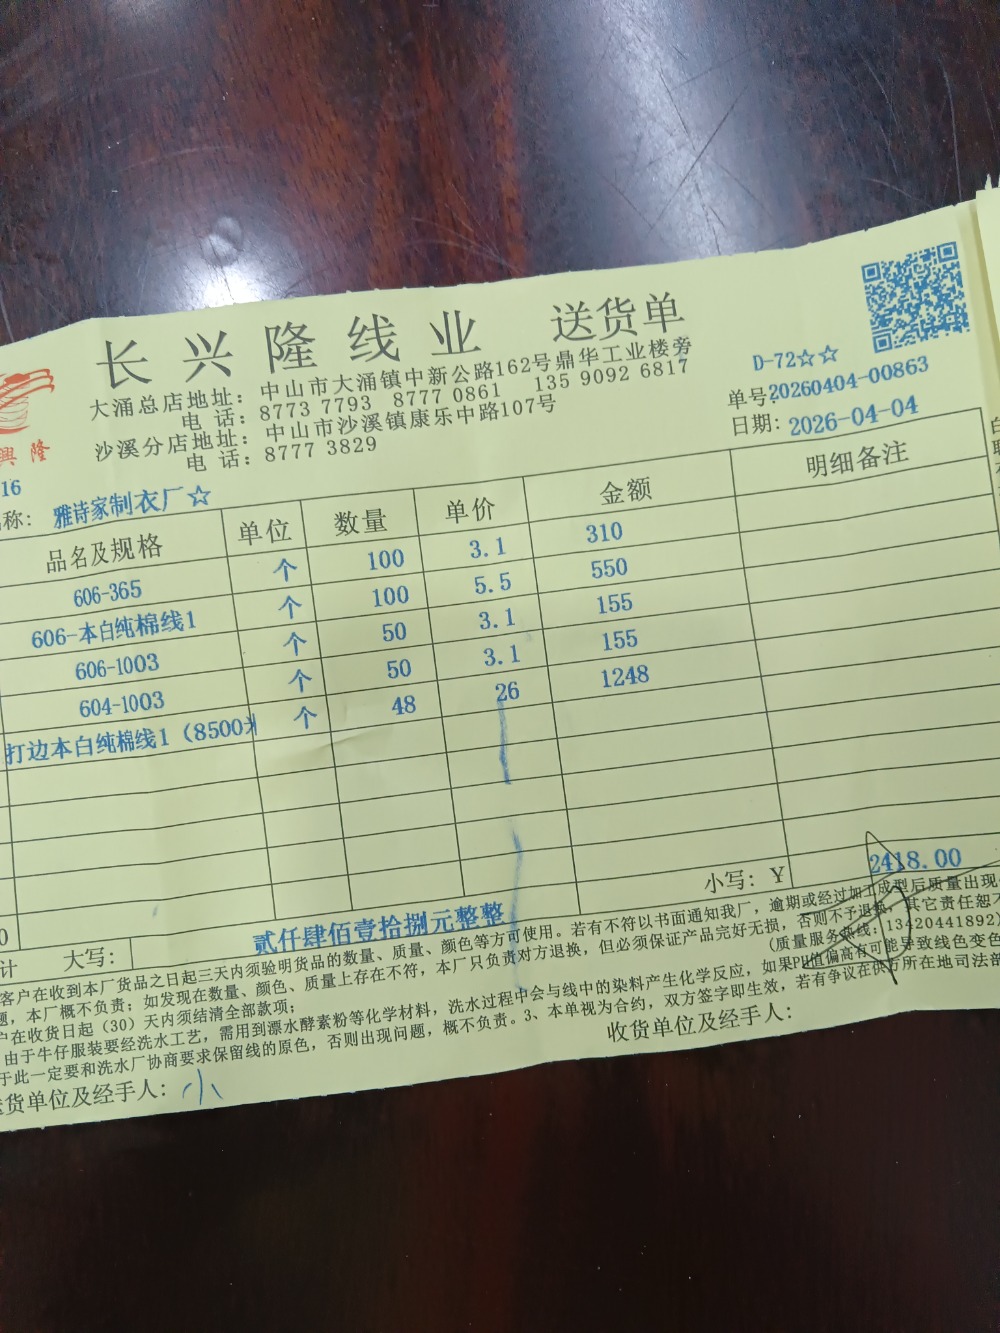 长兴隆线业 送货单
大涌总店地址：中山市大涌镇中新公路162号鼎华工业楼旁
电 话：8773 7793 8777 0861 135 9092 6817
沙溪分店地址：中山市沙溪镇康乐中路107号
电 话：8777 3829
D-72☆☆
单号:20260404-00863
日期: 2026-04-04
興 隆
16
称: 雅诗家制衣厂☆
品名及规格 单位 数量 单价 金额 明细备注
606-365 个 100 3.1 310
606-本白纯棉线1 个 100 5.5 550
606-1003 个 50 3.1 155
604-1003 个 50 3.1 155
打边本白纯棉线1（8500米 个 48 26 1248
小写：￥ 2418.00
计 大写： 贰仟肆佰壹拾捌元整整
客户在收到本厂货品之日起三天内须验明货品的数量、质量、颜色等方可使用。若有不符以书面通知我厂，逾期或经过加工成型后质量出现
题，本厂概不负责；如发现在数量、颜色、质量上存在不符，本厂只负责对方退换，但必须保证产品完好无损，否则不予退换，其它责任恕不
户在收货日起（30）天内须结清全部款项；
(质量服务热线：13420441892)
由于牛仔服装要经洗水工艺，需用到漂水酵素粉等化学材料，洗水过程中会与线中的染料产生化学反应，如果PH值偏高有可能导致线色变色
于此一定要和洗水厂协商要求保留线的原色，否则出现问题，概不负责。3、本单视为合约，双方签字即生效，若有争议在供方所在地司法部
货单位及经手人: 小
收货单位及经手人: